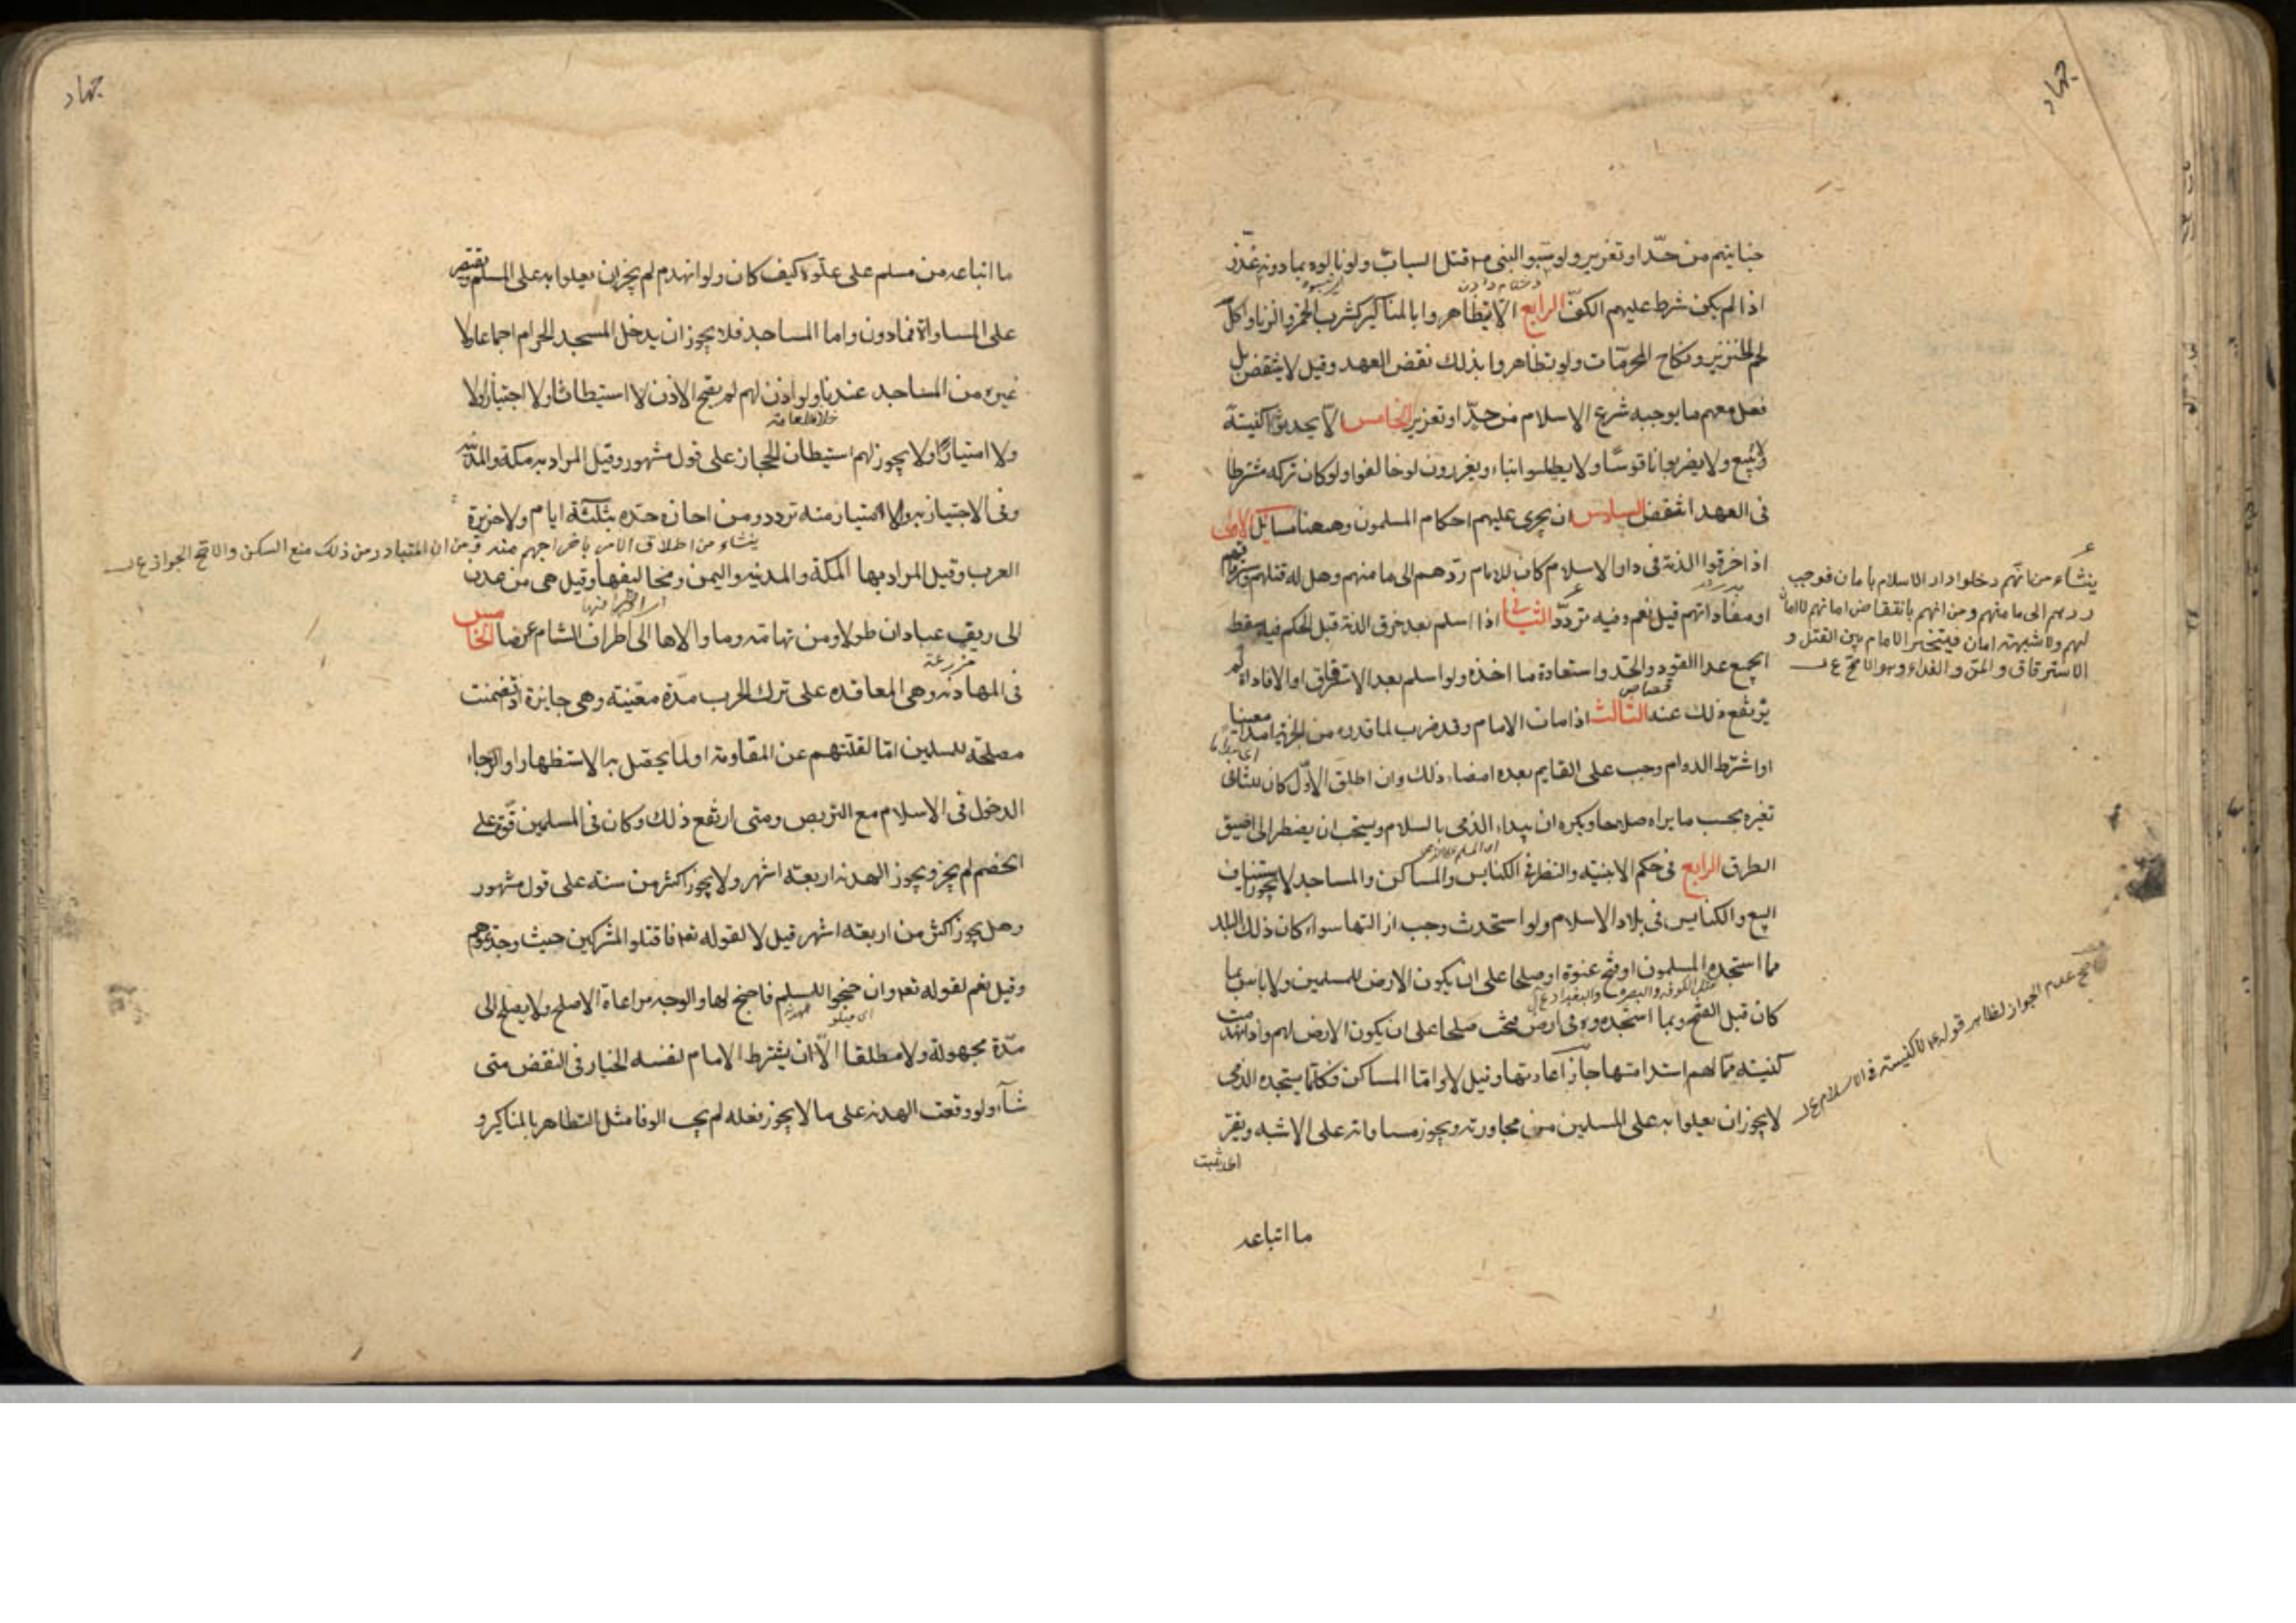 جهاد
جنايتهم من حدّ او تعزير ولو سبّوا النبی قتل الساب ولو نالوه بما دونه عُذّر
اذا لم يكن شرط عليهم الكفّ الرابع الّا يتظاهروا بالمناكير كشرب الخمر والزنا واكل
لحم الخنزير ونكاح المحرمات ولو تظاهروا بذلك نقض العهد وقيل لا ينتقض بل
فعل معهم ما يوجبه شرع الاسلام من حدّ او تعزير الخامس الّا يحدثوا كنيسة
ولا يضربوا ناقوسًا ولا يطيلوا بناء ويعزرون لو خالفوا ولو كان تركه مشترطا
فی العهد انتقض السادس ان يجری عليهم احكام المسلمون وههنا مسائل الاولی
اذا خرقوا الذمة فی دار الاسلام كان للامام ردّهم الی مامنهم وهل له قتلهم
او مفاداتهم قيل نعم وفيه تردّد الثانی اذا اسلم بعد خرق الذمة قبل الحكم فيه سقط
الجميع عدا القود والحدّ واستعادة ما اخذ ولو اسلم بعد الاسترقاق او المفاداة لم
يرتفع ذلك عنه الثالث اذا مات الامام وقد ضرب لما قدره من الجزية امدا معينا
او اشترط الدوام وجب علی القايم بعده امضاء ذلك وان اطلق الاوّل كان للثانی
تغيره بحسب ما يراه صلاحا ويكره ان يبداء الذمی بالسلام ويستحب ان يضطر الی اضيق
الطرق الرابع فی حكم الابنية والنظر فی الكنايس والمساكن والمساجد لا يجوز استيناف
البيع والكنايس فی بلاد الاسلام ولو استحدثت وجب ازالتها سواء كان ذلك البلد
مما استجده المسلمون او فتح عنوة او صلحا علی ان يكون الارض للمسلمين ولا باس بما
كان قبل الفتح وبما استجدوه فی ارض فتحت صلحا علی ان يكون الارض لهم واذا انهدمت
كنيسة مما لهم استدامتها جاز اعادتها وقيل لا واما المساكن فكلما يستجده الذمی
لا يجوز ان يعلوا به علی المسلمين من مجاوريه ويجوز مساواته علی الاشبه ويقر
ما اتباعه
ينشاء من انّهم دخلوا دار الاسلام بامان فوجب
ردهم الی مامنهم ومن انهم بانتقاض امانهم لا امان
لهم ولا شبهة امان فيتخير الامام بين القتل و
الاسترقاق والمن والفداء وهو الاصح ع ل
الاصح عدم الجواز لظاهر قوله لا كنيسة فی الاسلام ع ل
جهاد
ما اتباعه من مسلم علی علوّه كيف كان ولو انهدم لم يجز ان يعلوا به علی المسلم ويقتصر
علی المساواة فما دون واما المساجد فلا يجوز ان يدخل المسجد الحرام اجماعا ولا
غيره من المساجد عندنا ولو اذن لهم لم يصح الاذن لا استيطانا ولا اجتيازا ولا
ولا امتيارًا ولا يجوز لهم استيطان الحجاز علی قول مشهور وقيل المراد به مكة والمدينة
وفی الاجتياز به والامتيار منه تردد ومن اجازه حدّه بثلثة ايام ولا جزيرة
ينشاء من اطلاق الامر باخراجهم منه ومن ان المتبادر من ذلك منع السكن والاصح الجواز ع ل
العرب وقيل المراد بها المكة والمدينة واليمن ومخاليفها وقيل هی من عدن
الی ريف عبادان طولا ومن تهامة وما والاها الی اطراف الشام عرضا الخامس
فی المهادنة وهی المعاقده علی ترك الحرب مدّة معيّنة وهی جايزة اذا تضمنت
مصلحة للمسلين امّا لقلتهم عن المقاومة او لما يحصل به الاستظهار او لرجاء
الدخول فی الاسلام مع التربص ومتی ارتفع ذلك وكان فی المسلمين قوّة علی
الخصم لم يجز ويجوز الهدنة اربعة اشهر ولا يجوز اكثر من سنة علی قول مشهور
وهل يجوز اكثر من اربعة اشهر قيل لا لقوله تعه فاقتلوا المشركين حيث وجدتموهم
وقيل نعم لقوله تعه وان جنحوا للسلم فاجنح لها والوجه مراعاة الاصلح ولا يصلح الی
مدّة مجهولة ولا مطلقا الّا ان يشترط الامام لنفسه الخيار فی النقض متی
شاء ولو وقعت الهدنة علی ما لا يجوز فعله لم يجب الوفا مثل التظاهر بالمناكير و